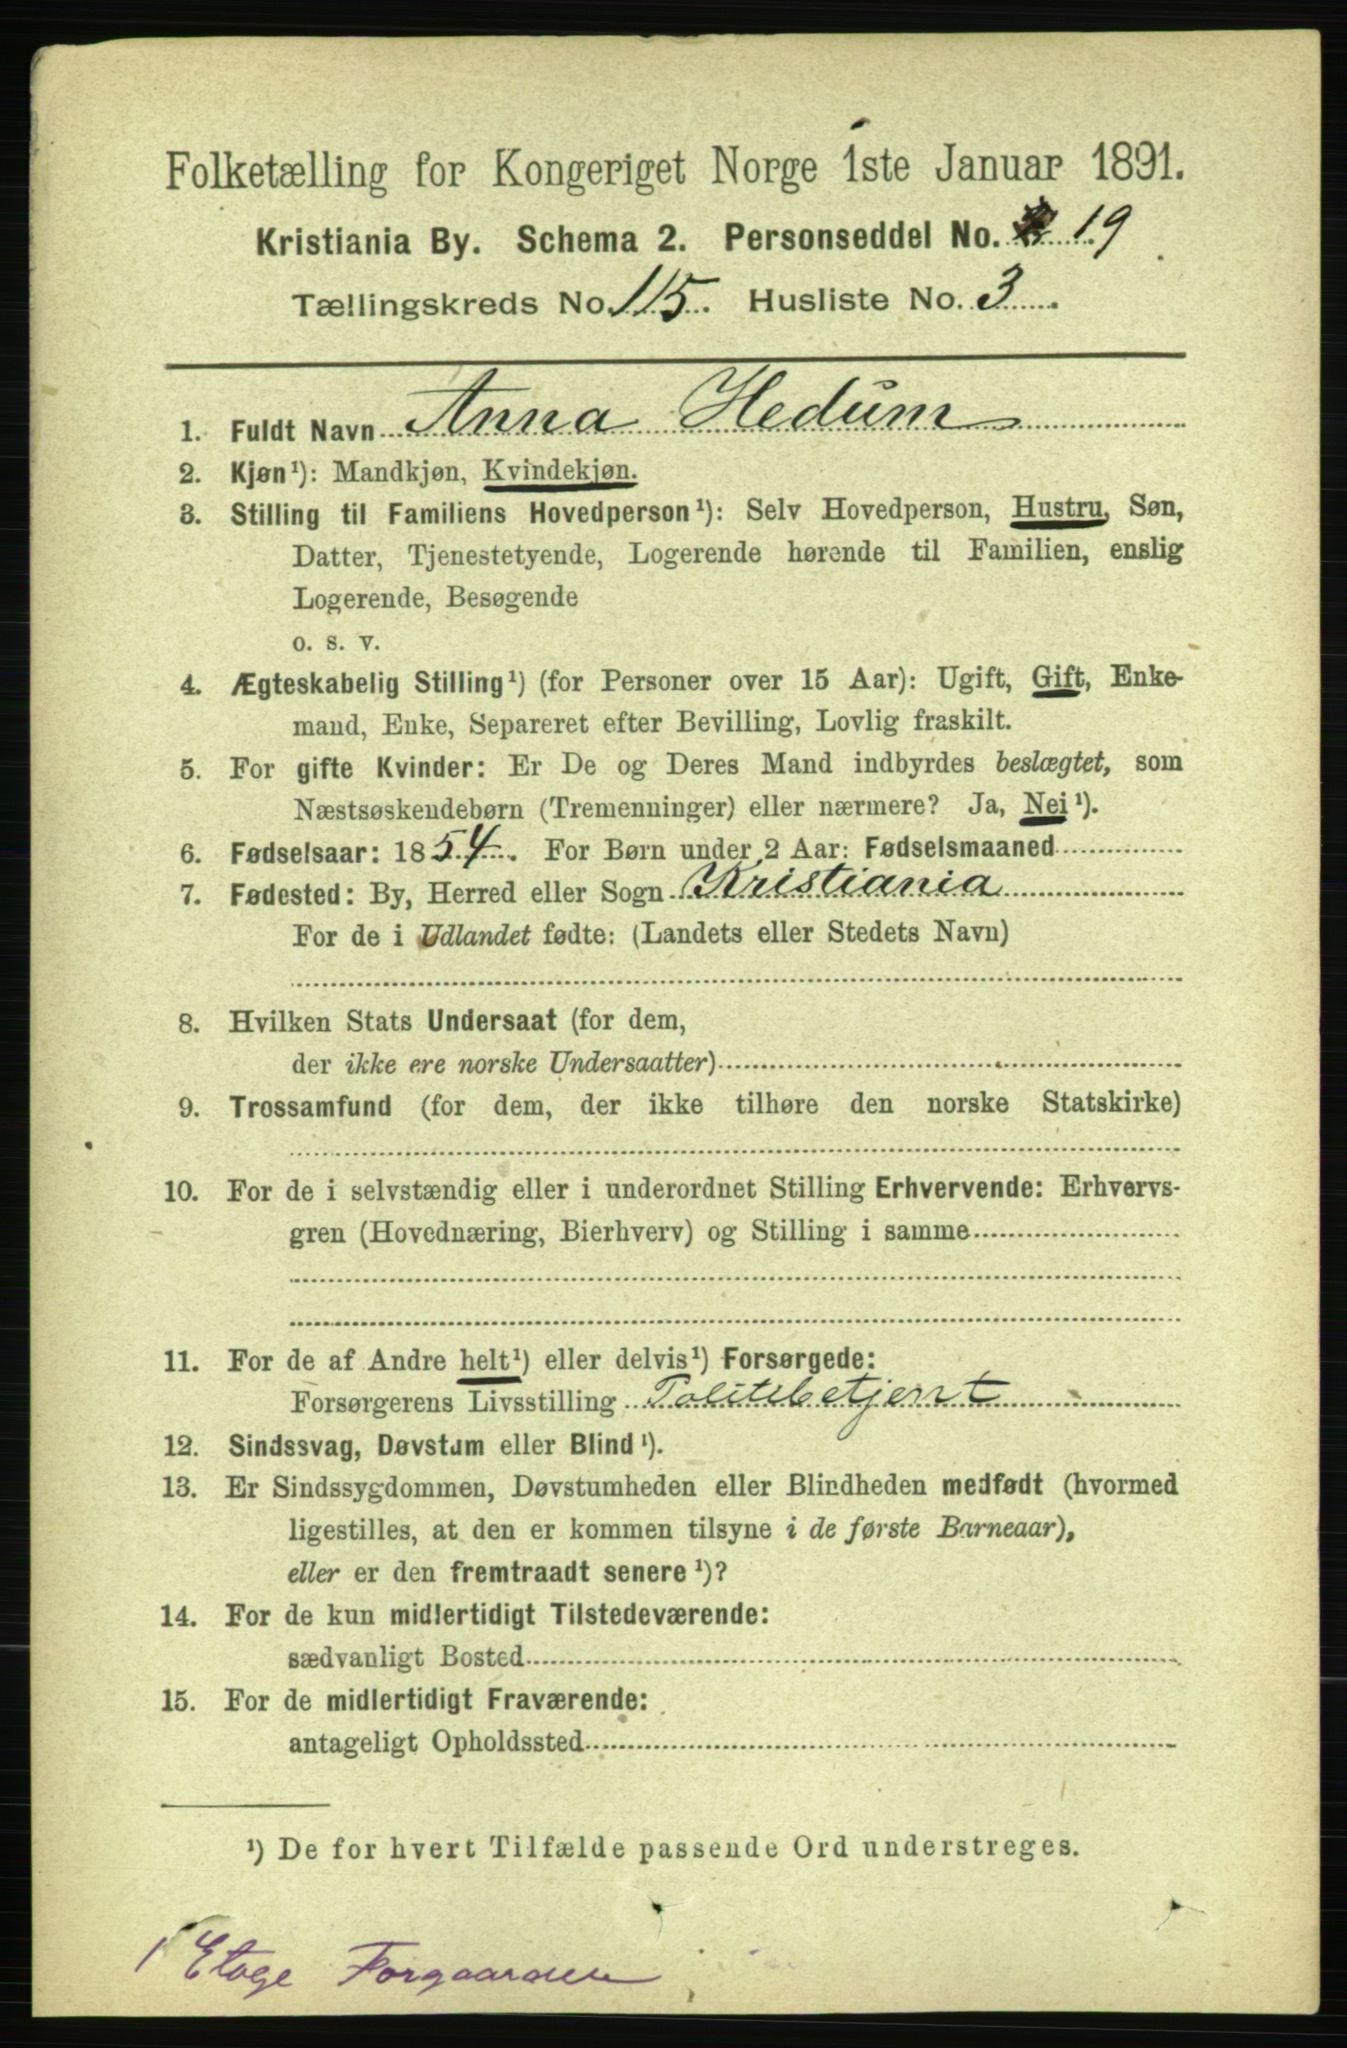 Folketælling for Kongeriget Norge 1ste Januar 1891.
Kristiania By. Schema 2. Personseddel No. 19
Tællingskreds No. 115. Husliste No. 3
1. Fuldt Navn Anna Hedum
2. Kjøn¹): Mandkjøn, Kvindekjøn.
3. Stilling til Familiens Hovedperson¹): Selv Hovedperson, Hustru, Søn,
Datter, Tjenestetyende, Logerende hørende til Familien, enslig
Logerende, Besøgende
o. s. v.
4. Ægteskabelig Stilling¹) (for Personer over 15 Aar): Ugift, Gift, Enke-
mand, Enke, Separeret efter Bevilling, Lovlig fraskilt.
5. For gifte Kvinder: Er De og Deres Mand indbyrdes beslægtet, som
Næstsøskendebørn (Tremenninger) eller nærmere? Ja, Nei¹).
6. Fødselsaar: 1854. For Børn under 2 Aar: Fødselsmaaned
7. Fødested: By, Herred eller Sogn Kristiania
For de i Udlandet fødte: (Landets eller Stedets Navn)
8. Hvilken Stats Undersaat (for dem,
der ikke ere norske Undersaatter)
9. Trossamfund (for dem, der ikke tilhøre den norske Statskirke)
10. For de i selvstændig eller i underordnet Stilling Erhvervende: Erhvervs-
gren (Hovednæring, Bierhverv) og Stilling i samme
11. For de af Andre helt¹) eller delvis¹) Forsørgede:
Forsørgerens Livsstilling Politibetjent
12. Sindssvag, Døvstum eller Blind¹).
13. Er Sindssygdommen, Døvstumheden eller Blindheden medfødt (hvormed
ligestilles, at den er kommen tilsyne i de første Barneaar),
eller er den fremtraadt senere¹)?
14. For de kun midlertidigt Tilstedeværende:
sædvanligt Bosted
15. For de midlertidigt Fraværende:
antageligt Opholdssted
¹) De for hvert Tilfælde passende Ord understreges.
1 Etage Forgaarden